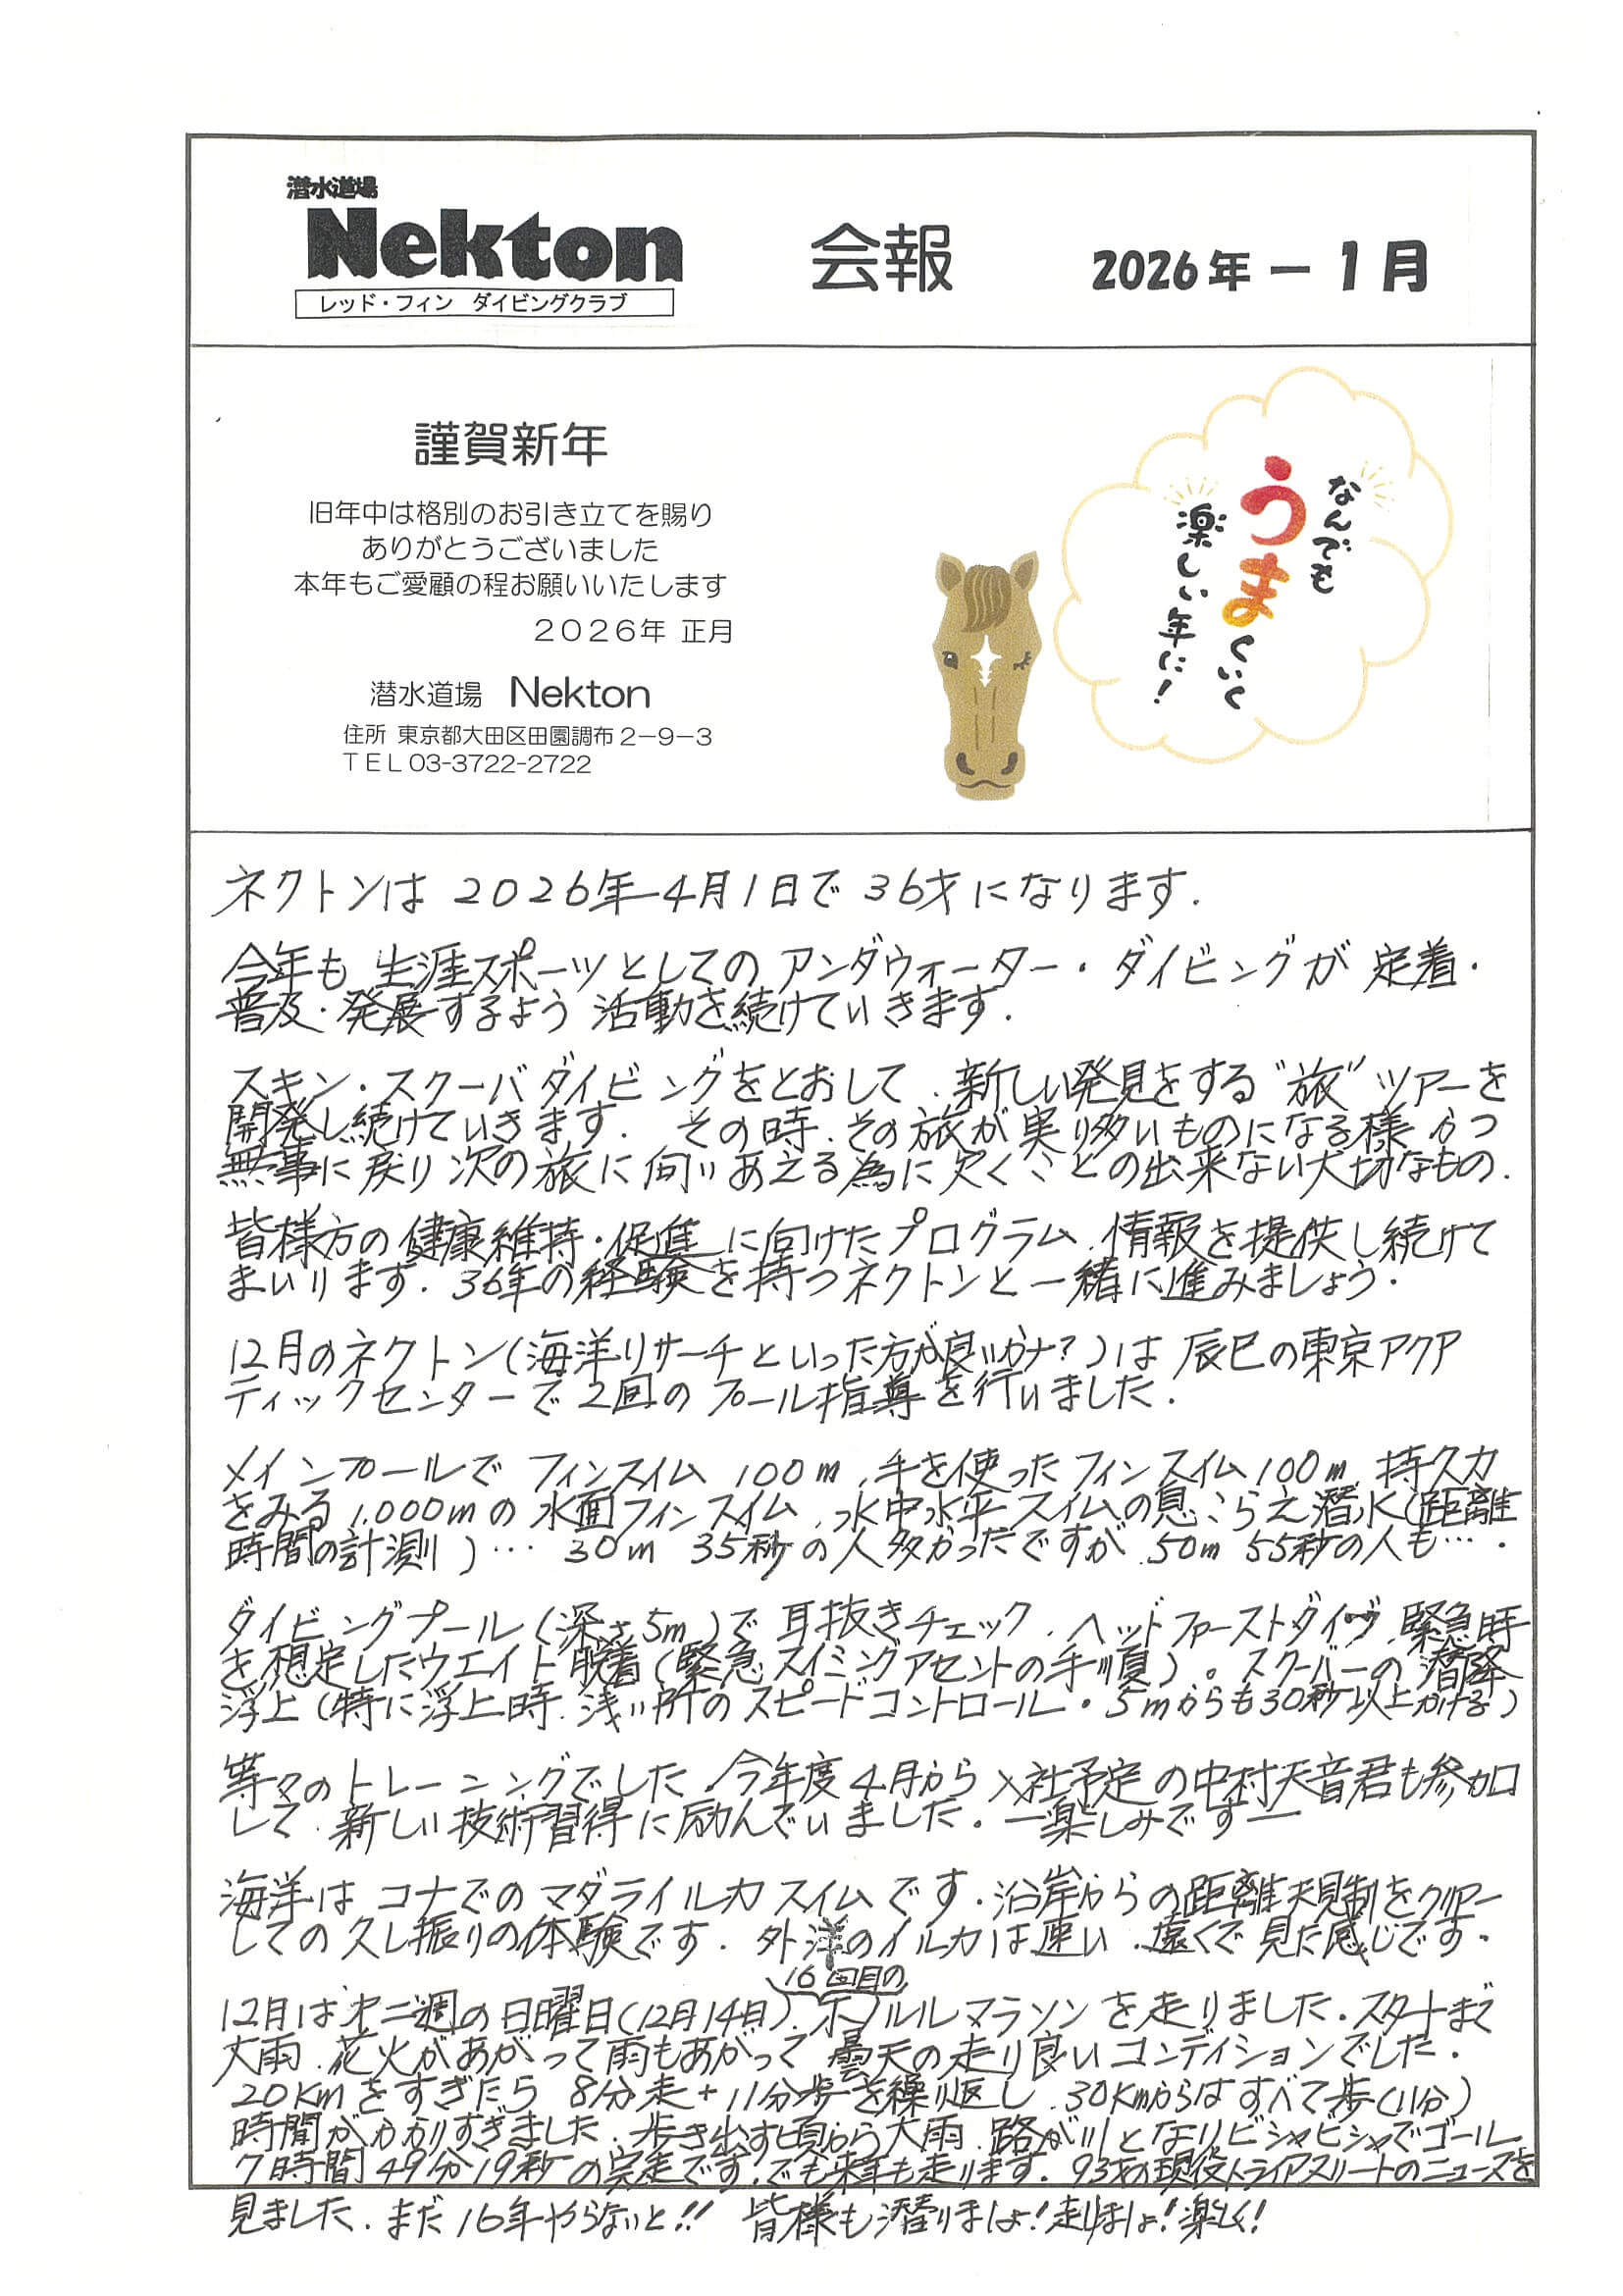 潜水道場
Nekton
レッド・フィン ダイビングクラブ
会報
2026年－1月
謹賀新年
旧年中は格別のお引き立てを賜り
ありがとうございました
本年もご愛顧の程お願いいたします
２０２６年 正月
潜水道場 Nekton
住所 東京都大田区田園調布２－９－３
ＴＥＬ03-3722-2722
なんでも
うまくいく
楽しい年に！
ネクトンは2026年4月1日で36才になります.
今年も生涯スポーツとしてのアンダウォーター・ダイビングが定着・
普及・発展するよう活動を続けていきます.
スキン・スクーバダイビングをとおして、新しい発見をする"旅"ツアーを
開発し続けていきます. その時、その旅が実り多いものになる様かつ
無事に戻り次の旅に向いあえる為に欠くことの出来ない大切なもの.
皆様方の健康維持・促進に向けたプログラム、情報を提供し続けて
まいります. 36年の経験を持つネクトンと一緒に進みましょう.
12月のネクトン(海洋リサーチといった方が良いかナ?)は辰巳の東京アクア
ティックセンターで2回のプール指導を行いました.
メインプールでフィンスイム100m、手を使ったフィンスイム100m、持久力
をみる1.000mの水面フィンスイム、水中水平スイムの息こらえ潜水(距離
時間の計測)… 30m 35秒の人多かったですが、50m 55秒の人も….
ダイビングプール(深さ5m)で耳抜きチェック、ヘッドファーストダイヴ、緊急時
を想定したウエイト脱着(緊急スイミングアセントの手順)。スクーバーの潜降
浮上(特に浮上時、浅い所のスピードコントロール・5mからも30秒以上かける)
等々のトレーニングでした、今年度4月から入社予定の中村天音君も参加
して、新しい技術習得に励んでいました。―楽しみです―
海洋はコナでのマダライルカスイムです.沿岸からの距離規制をクリアー
しての久し振りの体験です. 外洋のイルカは速い、遠くで見た感じです.
12月は才二週の日曜日(12月14日)、16回目のホノルルマラソンを走りました.スタートまで
大雨、花火があがって雨もあがって曇天の走り良いコンディションでした.
20Kmをすぎたら8分走+11分歩を繰り返し、30Kmからはすべて歩(11分)
時間がかかりすぎました、歩き出す頃から大雨、路が川となりビシャビシャでゴール
7時間49分19秒の完走です.でも来年も走ります. 93才の現役トライアスリートのニュースを
見ました、まだ16年やらないと!! 皆様も潜りましょ!走りましょ!楽しく!